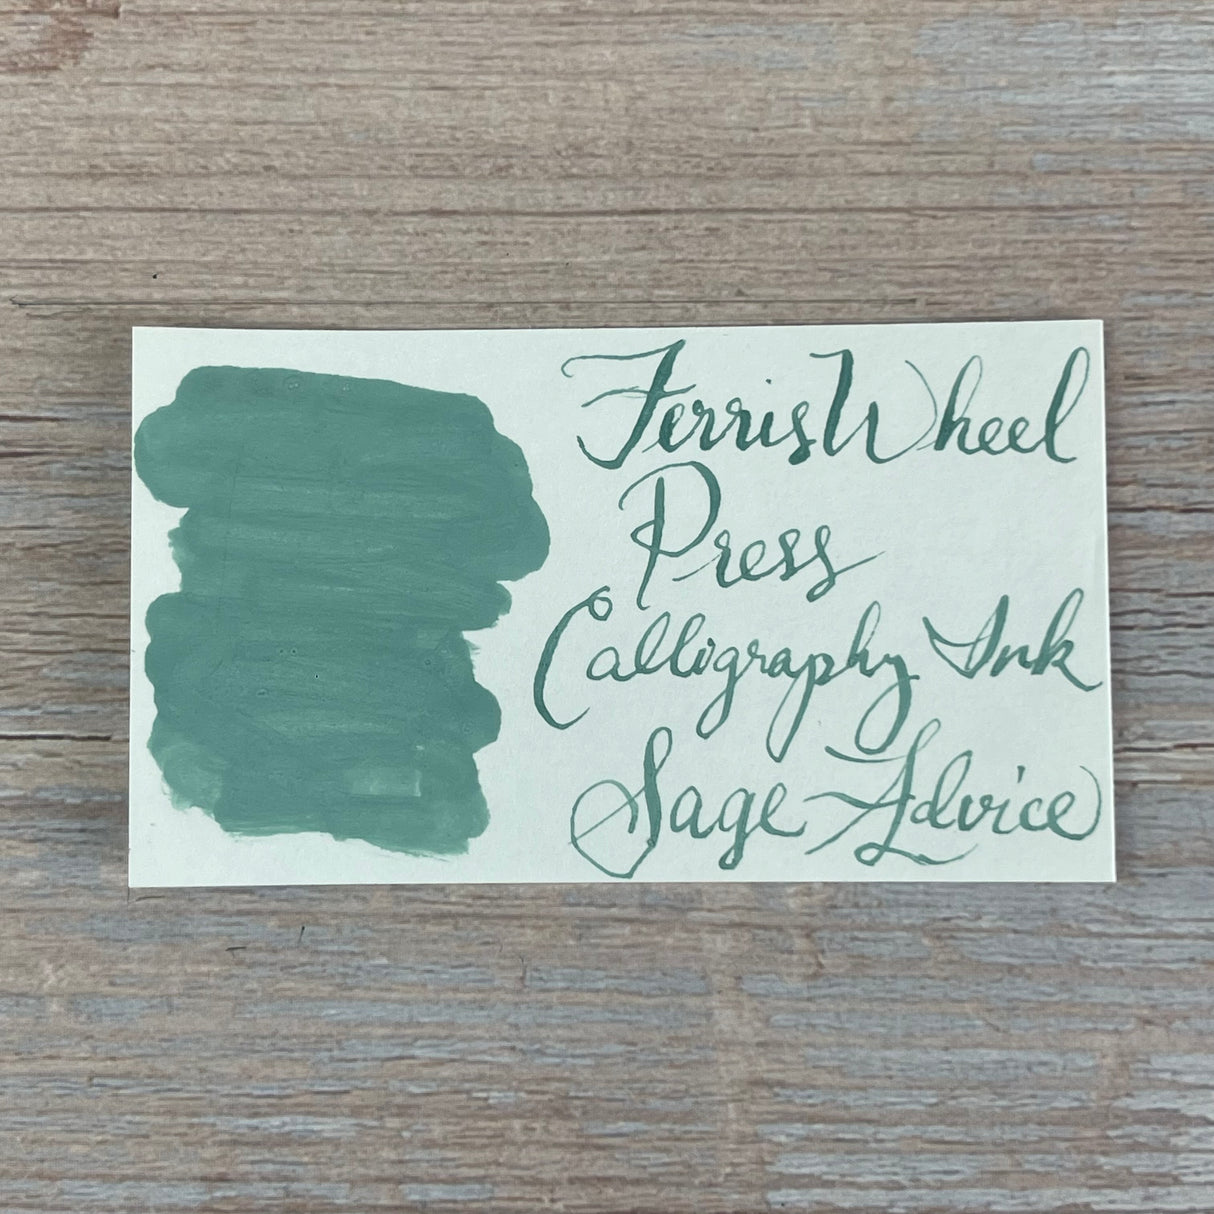 Ferris Wheel
Press
Calligraphy Ink
Sage Advice